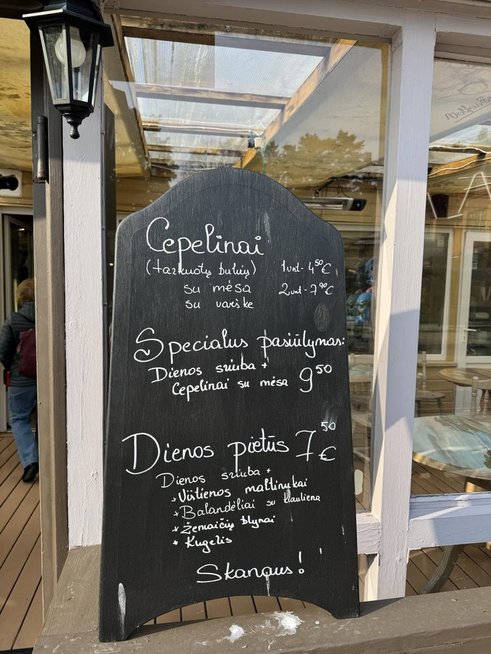 Cepelinai
(tarkuotų bulvių) 1vnt- 4⁵⁰€
su mėsa 2vnt- 7⁹⁰€
su varške
Specialus pasiūlymas:
Dienos sriuba +
Cepelinai su mėsa 9⁵⁰
Dienos pietūs 7⁵⁰€
Dienos sriuba +
* Vištienos maltinukai
* Balandėliai su kiauliena
* Žemaičių blynai
* Kugelis
Skanaus!